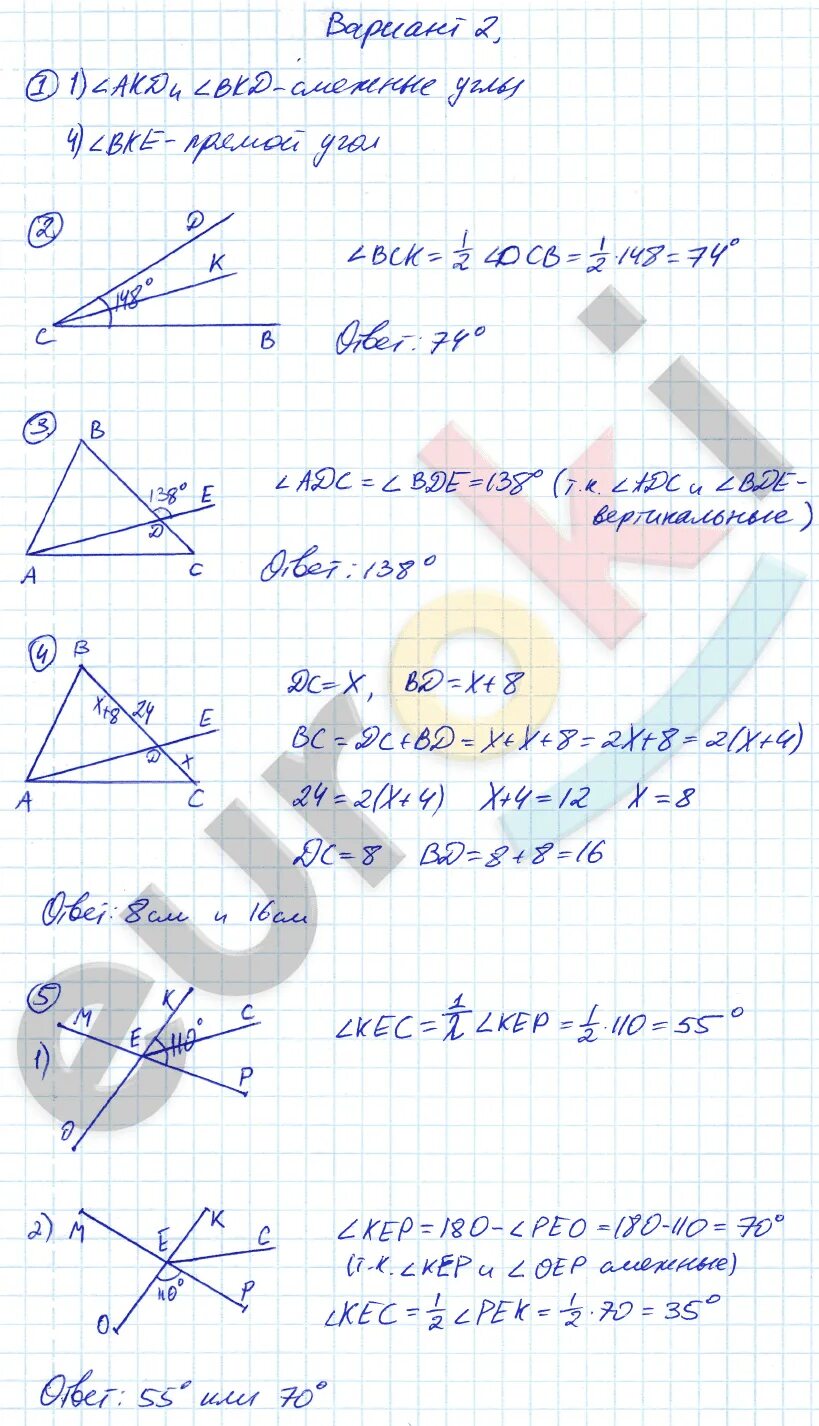 Вариант 2.
① 1) ∠AKD и ∠BKD - смежные углы
4) ∠BKE - прямой угол
②
D
K
148°
C
B
∠BCK = 1/2 ∠DCB = 1/2 · 148 = 74°
Ответ: 74°
③
B
138°
E
D
A
C
∠ADC = ∠BDE = 138° (т.к. ∠ADC и ∠BDE -
вертикальные)
Ответ: 138°
④
B
x+8
24
E
D
x
A
C
DC = x, BD = x+8
BC = DC + BD = x + x + 8 = 2x + 8 = 2(x+4)
24 = 2(x+4) x+4 = 12 x = 8
DC = 8 BD = 8 + 8 = 16
Ответ: 8 см и 16 см
⑤
1)
K
M
C
E
110°
P
O
∠KEC = 1/2 ∠KEP = 1/2 · 110 = 55°
2)
M
K
E
C
110°
P
O
∠KEP = 180 - ∠PEO = 180 - 110 = 70°
(т.к. ∠KEP и ∠OEP смежные)
∠KEC = 1/2 ∠PEK = 1/2 · 70 = 35°
Ответ: 55° или 70°
euroki